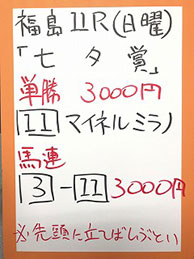 福島11R(日曜)
「七夕賞」
単勝 3000円
11 マイネルミラノ
馬連
3-11 3000円
※先頭に立てばしぶとい